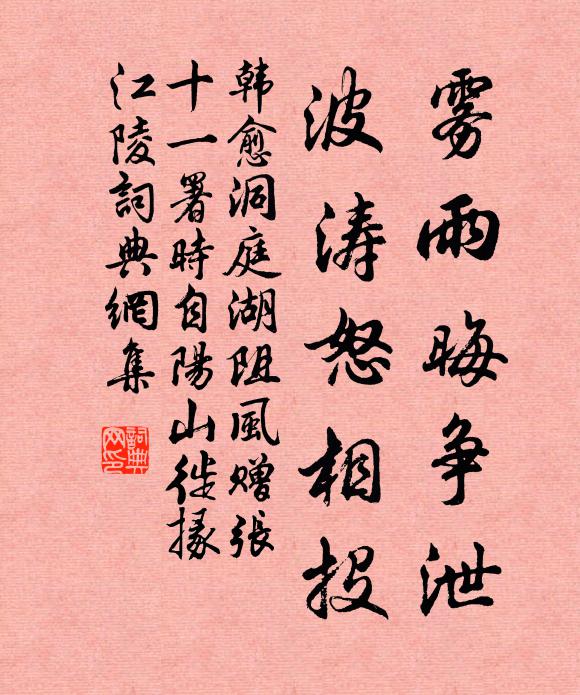 雾雨晦争泄
波涛怒相投
韩愈洞庭湖阻風赠張
十一署時自陽山徙掾
江陵詞典網集
詞典
网印